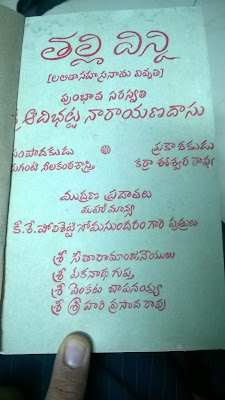 తల్లి విన్కి
[లలితాసహస్రనామ వివృతి]
పుంభావ సరస్వతి
ఆదిభట్ట నారాయణదాసు
సంపాదకుడు ప్రకాశకుడు
నీలకంఠశాస్త్రి కర్రా ఈశ్వర రావు
ముద్రణ ప్రదాతలు
మహామాన్య
కీ.శే. పోలిశెట్టి సోమసుందరం గారి పుత్రులు
శ్రీ సీతారామాంజనేయులు
శ్రీ ఏకనాథ గుప్త
శ్రీ వెంకట పాపనయ్య
శ్రీ శ్రీహరి ప్రసాద రావు